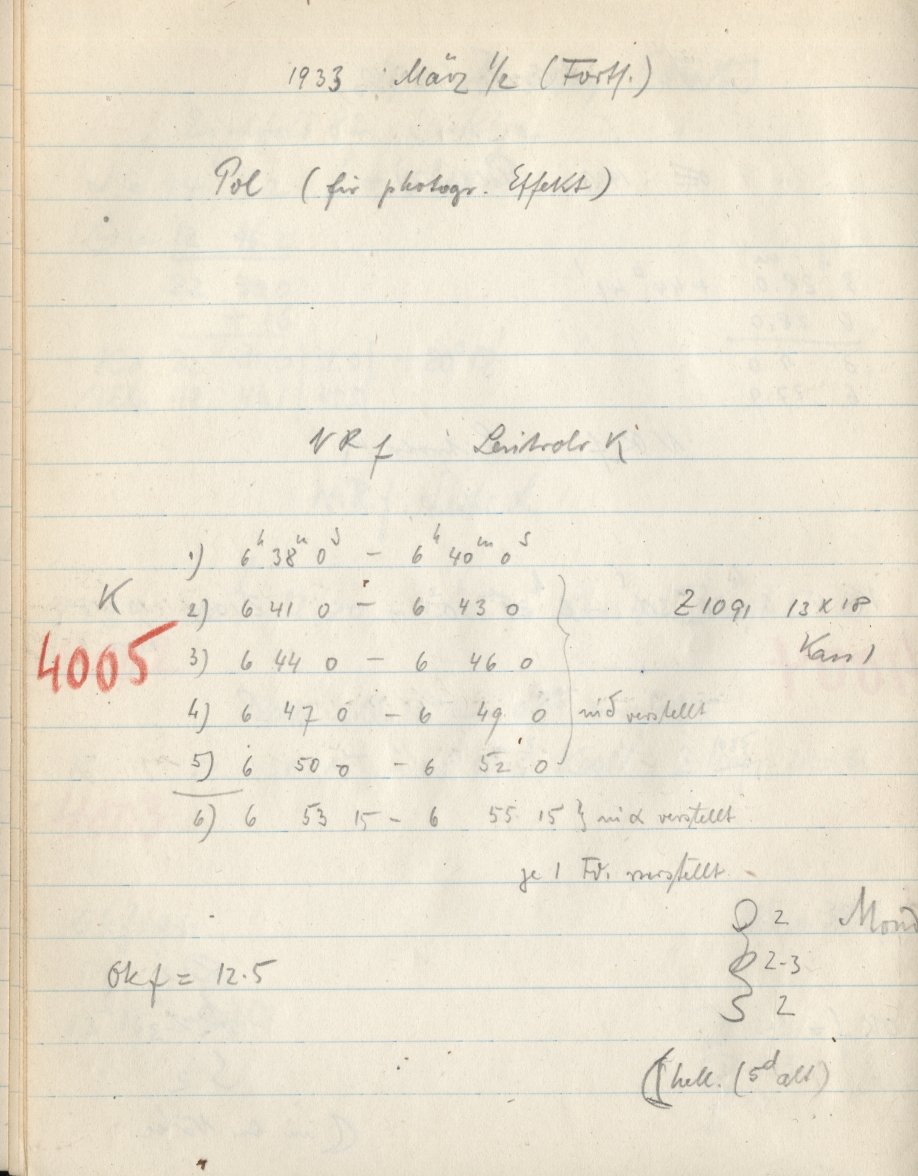 1933 März 1/2 (Fortf.)
Pol (für photogr. Effekt)
NRf Leitrohr K
1) 6h 38m 0s – 6h 40m 0s
K 2) 6 41 0 – 6 43 0 Z1091 13 x 18
4005 3) 6 44 0 – 6 46 0 Kass 1
4) 6 47 0 – 6 49 0 verstellt
5) 6 50 0 – 6 52 0
6) 6 53 15 – 6 55 15 } verstellt
je 1 verstellt
2 Mond
Okf = 12.5 2-3
S 2
hell. (5d alt)